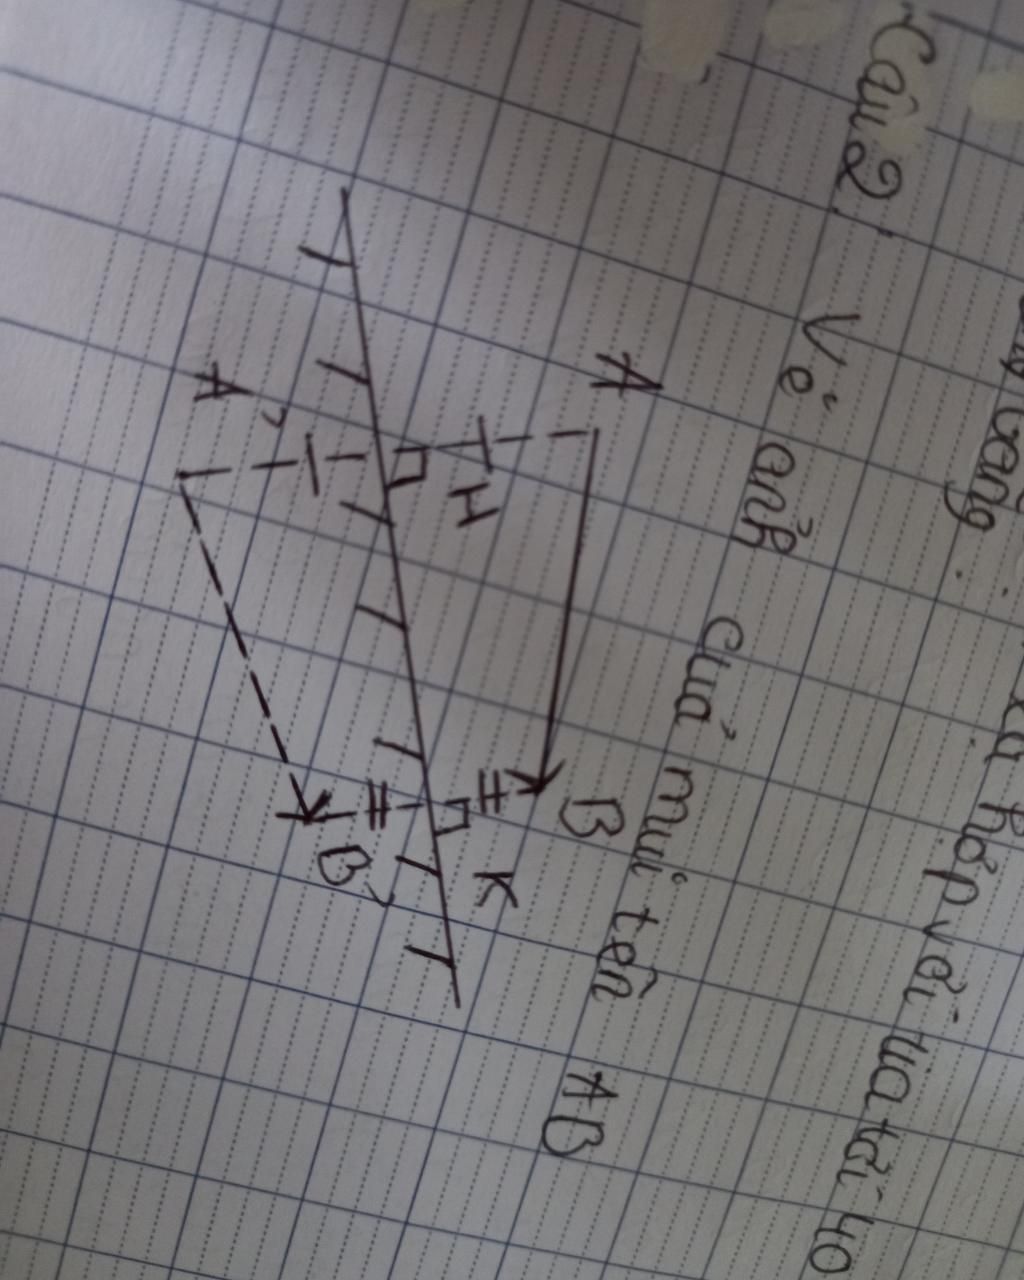 vàng :
hợp với tia tới 40
Câu 2: Vẽ ảnh của mũi tên AB
A
B
H
K
A'
B'